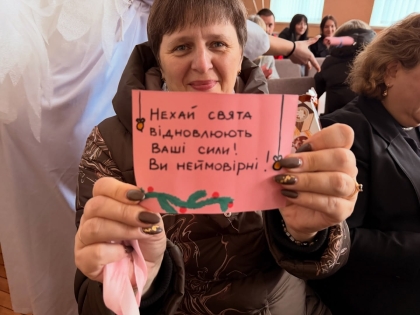 Нехай свята
відновлюють
Ваші сили!
Ви неймовірні!